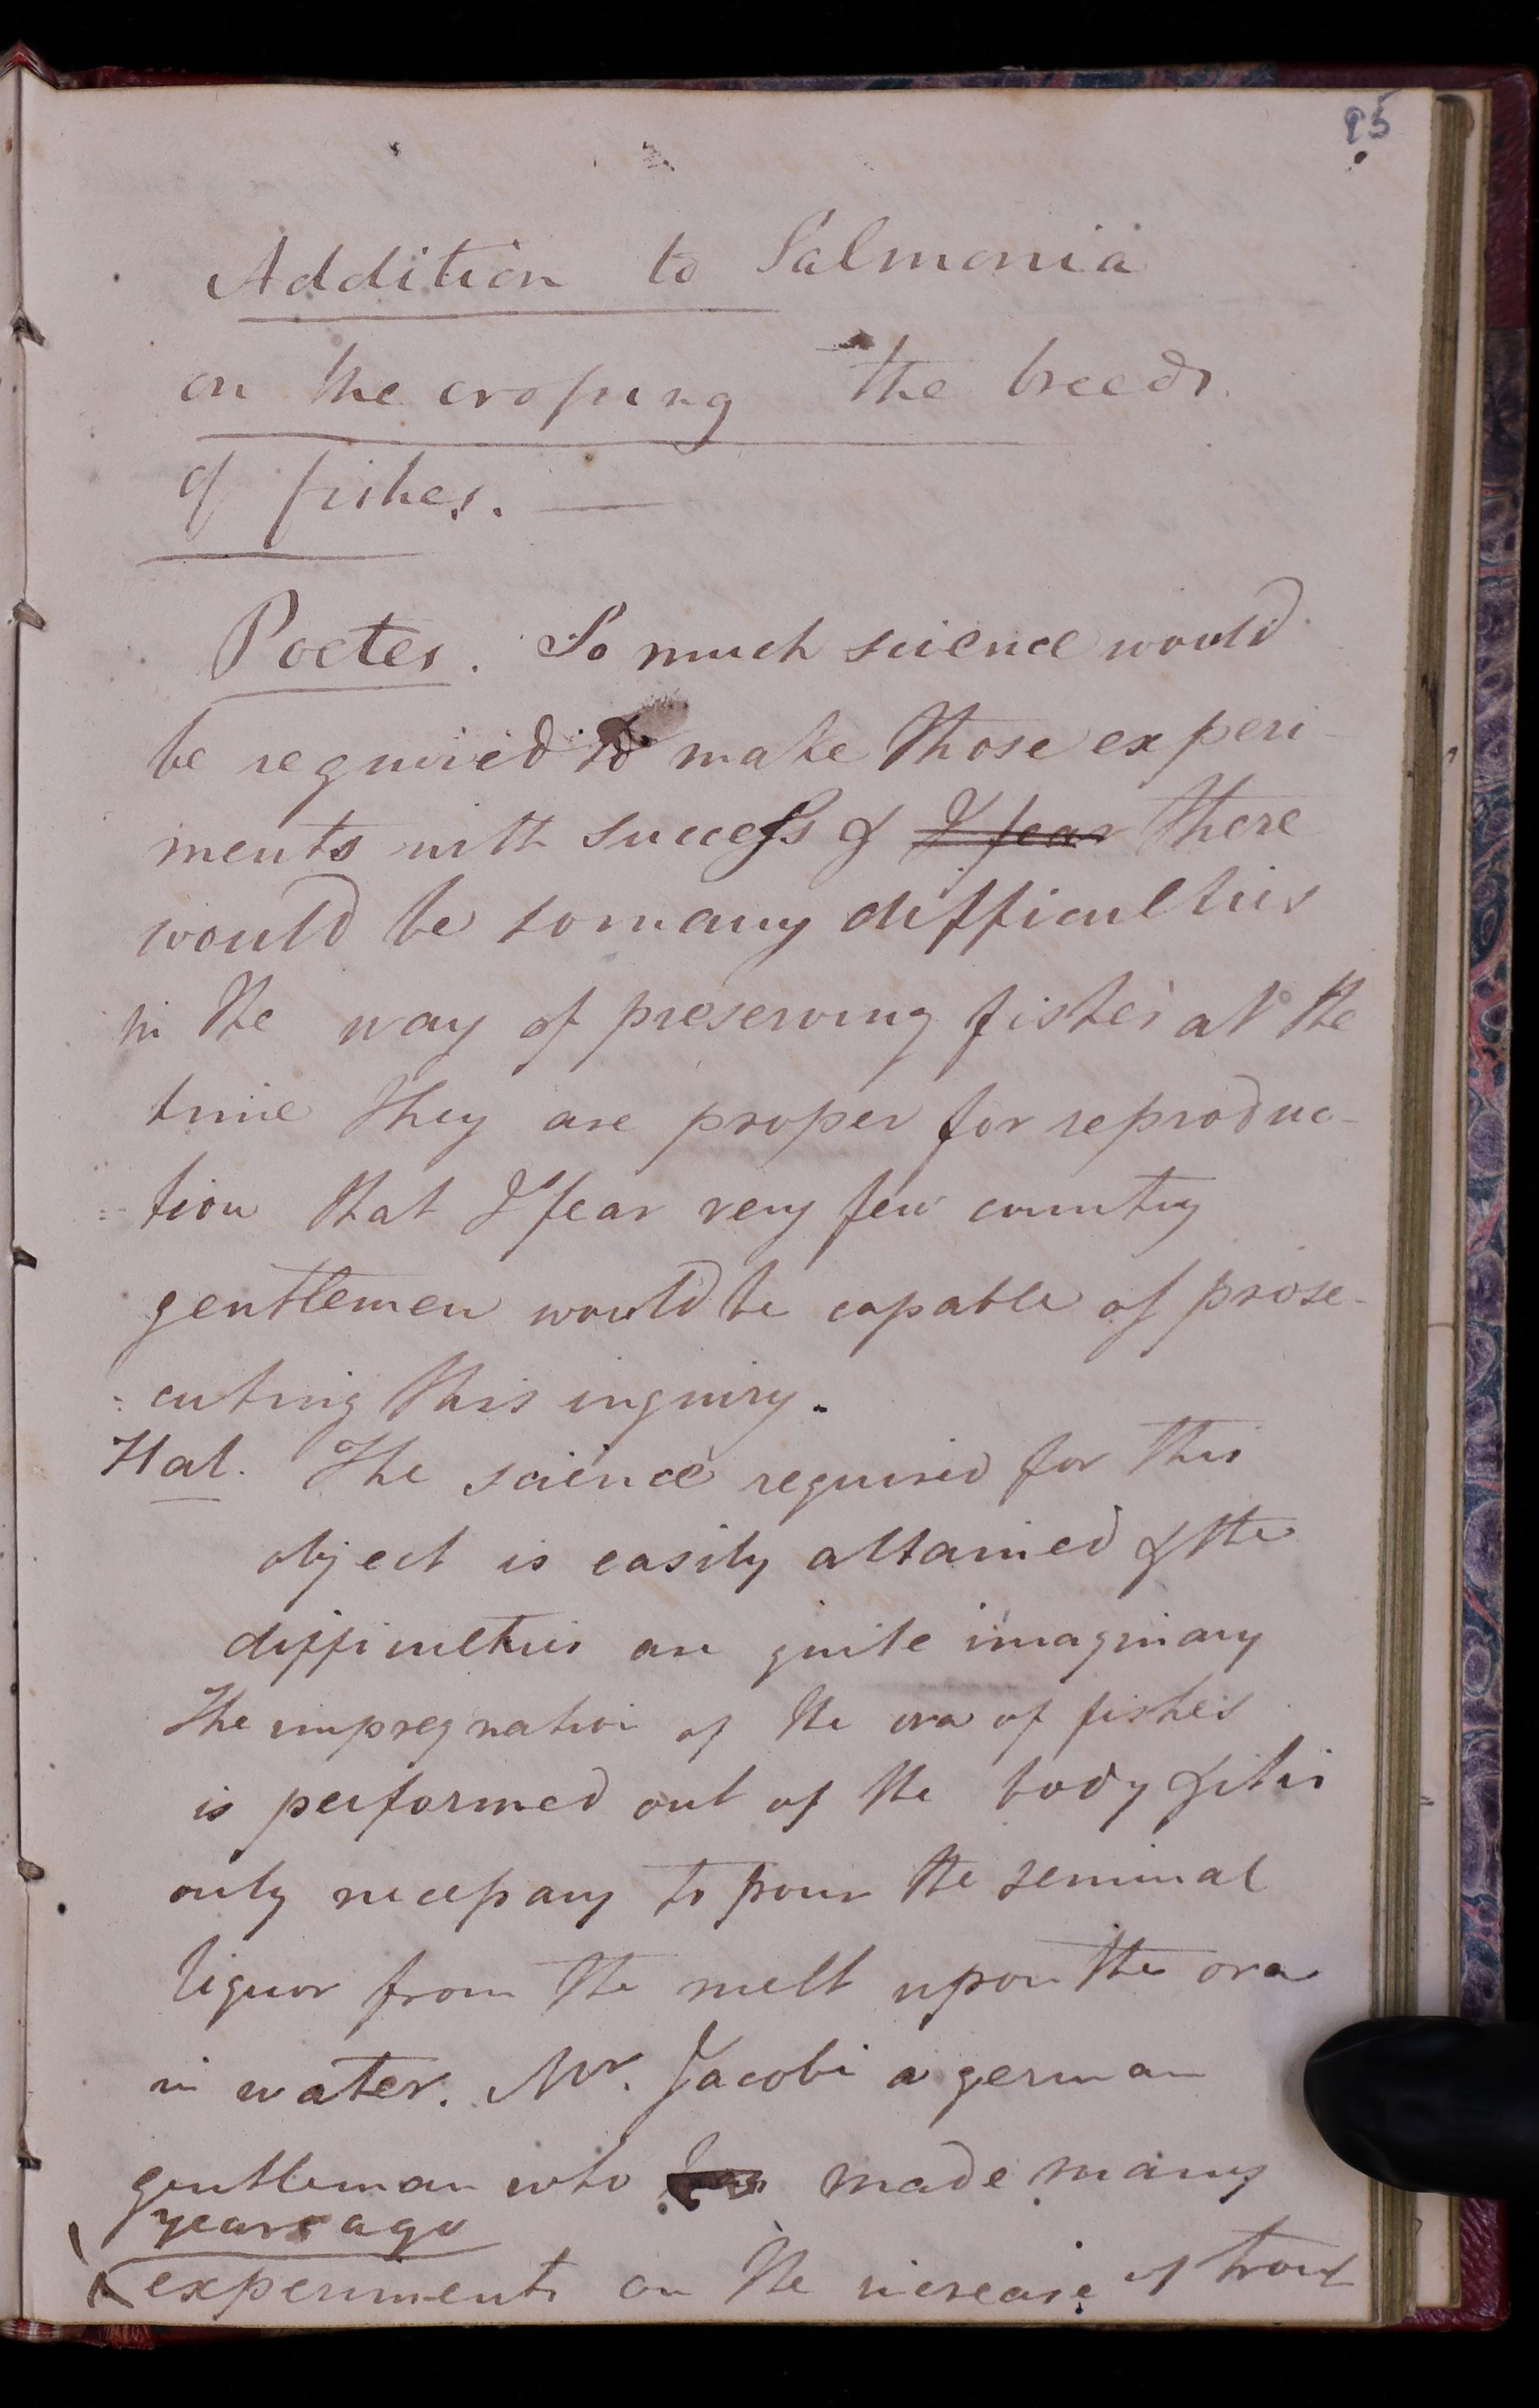 95
Addition to Salmonia
on the crossing the breeds
of fishes. —
Poetes. So much science would
be required to make those experi
ments with success & I fear there
would be so many difficulties
in the way of preserving fishes at the
time they are proper for reproduc-
tion that I fear very few country
gentlemen would be capable of prose-
cuting this inquiry.
Hal. The science required for this
object is easily attained & the
difficulties are quite imaginary
The impregnation of the ova of fishes
is performed out of the body & it is
only necessary to pour the seminal
liquor from the melt upon the ova
in water. Mr. Jacobi a german
gentleman who made many
years ago
experiments on the increase of trout